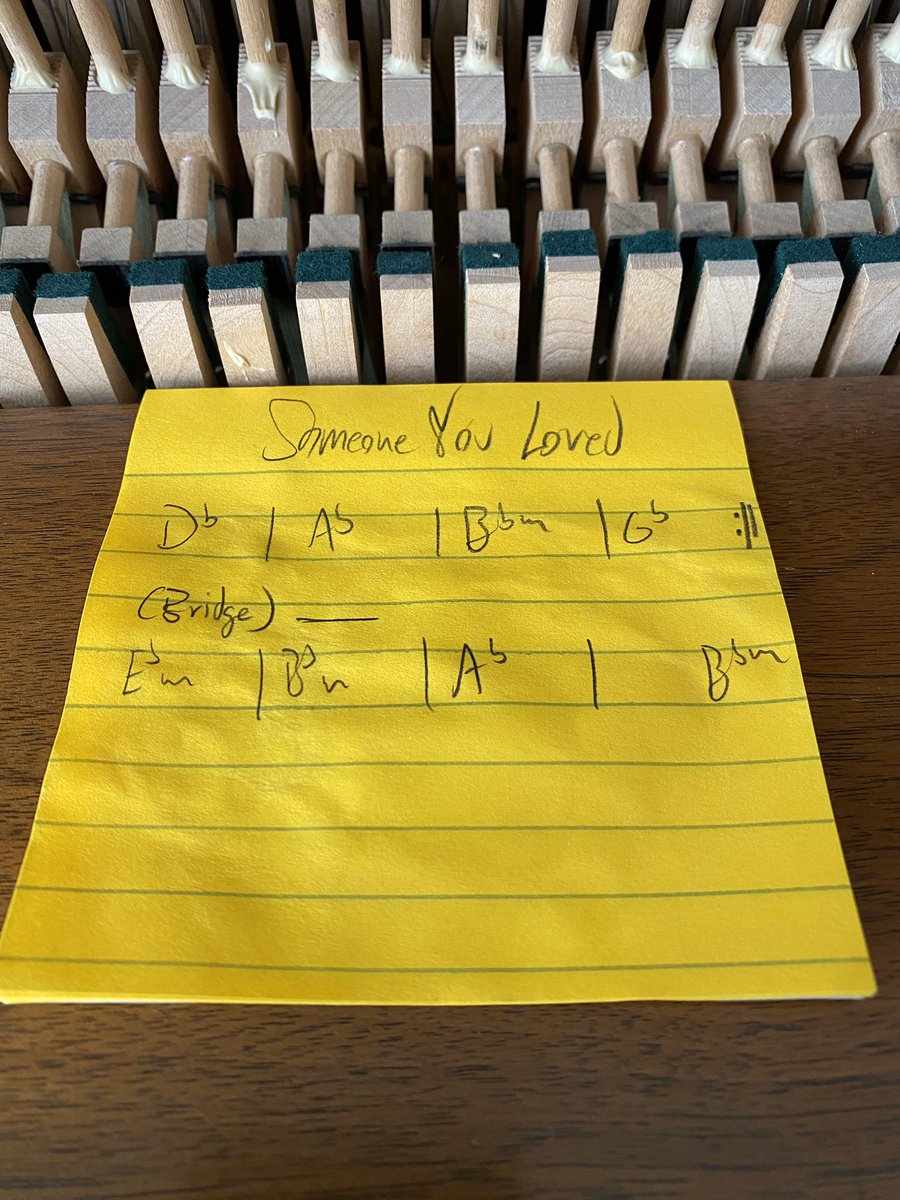 Someone You Loved
D♭ | A♭ | B♭m | G♭ :||
(Bridge) —
E♭m | B♭m | A♭ | B♭m